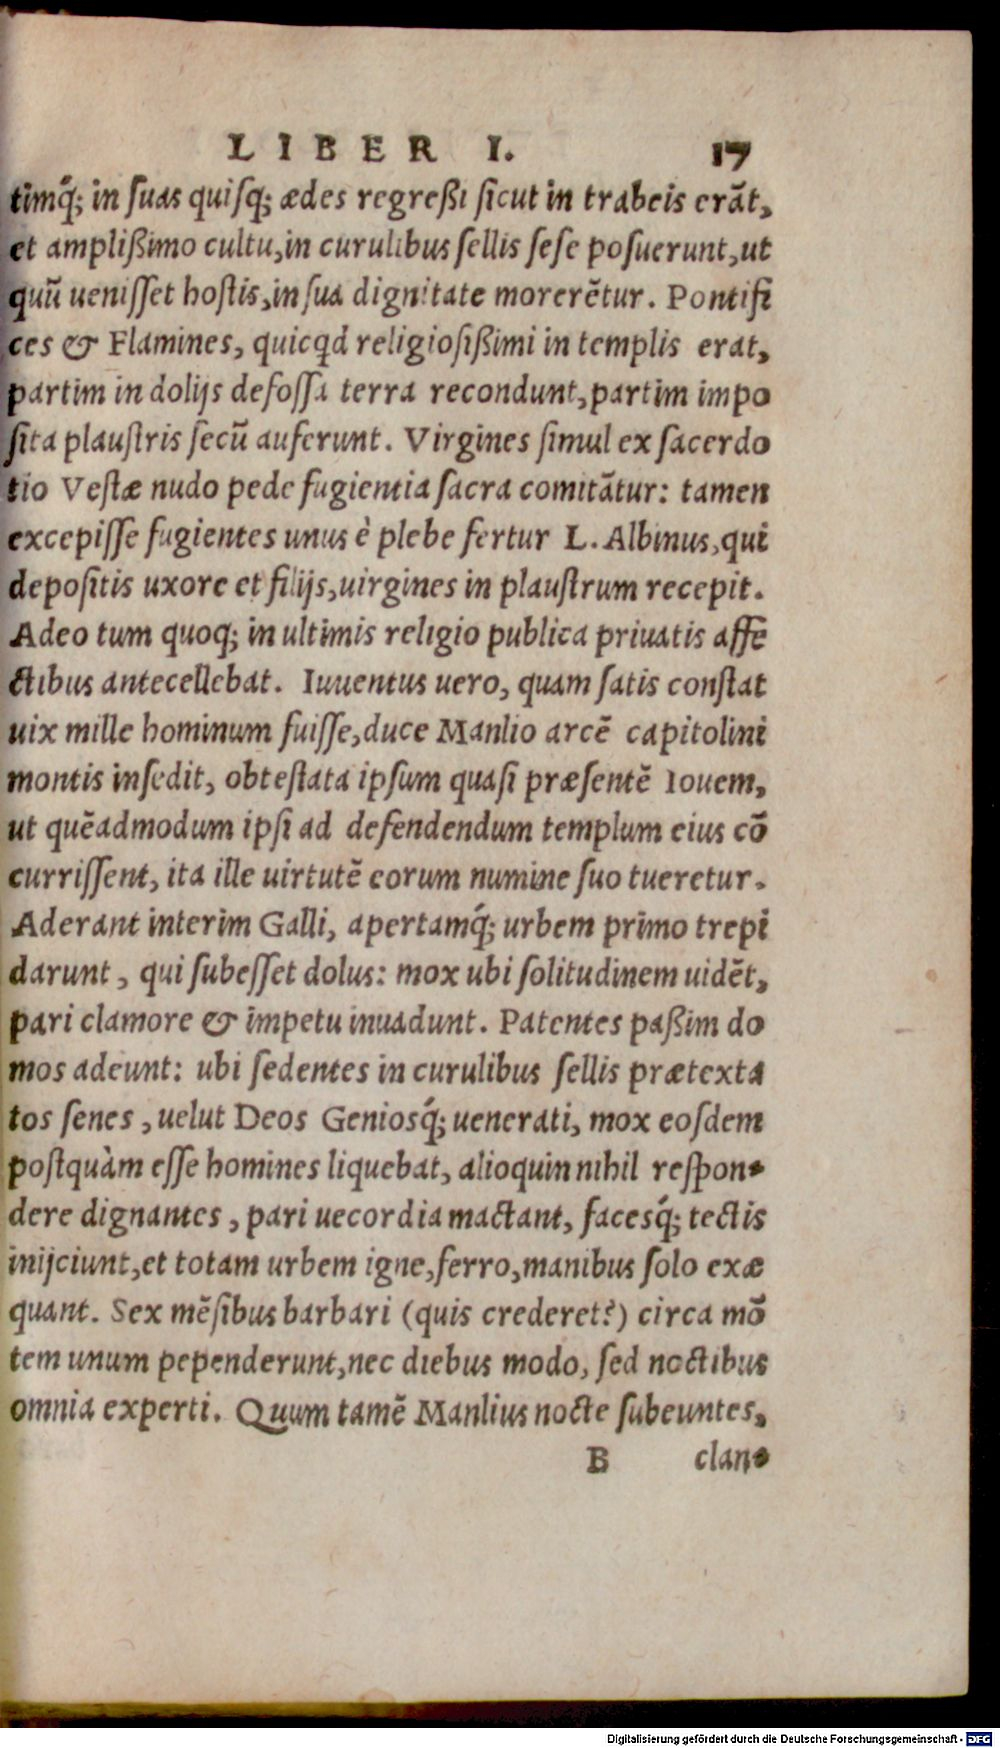 LIBER I. 17
timq́; in suas quisq; ædes regreßi sicut in trabeis erãt,
et amplißimo cultu, in curulibus sellis sese posuerunt, ut
quũ uenisset hostis, in sua dignitate morerẽtur. Pontifi
ces & Flamines, quicqd religiosißimi in templis erat,
partim in dolijs defossa terra recondunt, partim impo
sita plaustris secũ auferunt. Virgines simul ex sacerdo
tio Vestæ nudo pede fugientia sacra comitãtur: tamen
excepisse fugientes unus è plebe fertur L. Albinus, qui
depositis uxore et filijs, uirgines in plaustrum recepit.
Adeo tum quoq; in ultimis religio publica priuatis affe
ctibus antecellebat. Iuuentus uero, quam satis constat
uix mille hominum fuisse, duce Manlio arcẽ capitolini
montis insedit, obtestata ipsum quasi præsentẽ Iouem,
ut quẽadmodum ipsi ad defendendum templum eius cõ
currissent, ita ille uirtutẽ eorum numine suo tueretur.
Aderant interim Galli, apertamq́; urbem primo trepi
darunt, qui subesset dolus: mox ubi solitudinem uidẽt,
pari clamore & impetu inuadunt. Patentes paßim do
mos adeunt: ubi sedentes in curulibus sellis prætexta
tos senes, uelut Deos Geniosq́; uenerati, mox eosdem
postquàm esse homines liquebat, alioquin nihil respon-
dere dignantes, pari uecordia mactant, facesq́; tectis
inijciunt, et totam urbem igne, ferro, manibus solo exæ
quant. Sex mẽsibus barbari (quis crederet?) circa mõ
tem unum pependerunt, nec diebus modo, sed noctibus
omnia experti. Quum tamẽ Manlius nocte subeuntes,
B clan-
Digitalisierung gefördert durch die Deutsche Forschungsgemeinschaft - DFG